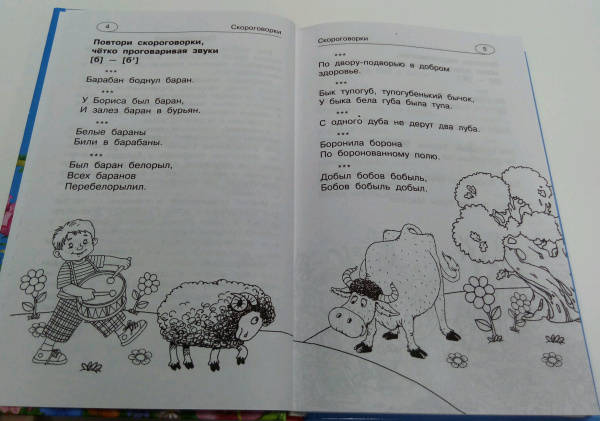 4
Скороговорки
Повтори скороговорки,
чётко проговаривая звуки
[б] — [б']
***
Барабан боднул баран.
***
У Бориса был баран,
И залез баран в бурьян.
***
Белые бараны
Били в барабаны.
***
Был баран белорыл,
Всех баранов
Перебелорылил.
Скороговорки
5
***
По двору-подворью в добром
здоровье.
***
Бык тупогуб, тупогубенький бычок,
У быка бела губа была тупа.
***
С одного дуба не дерут два луба.
***
Боронила борона
По боронованному полю.
***
Добыл бобов бобыль,
Бобов бобыль добыл.